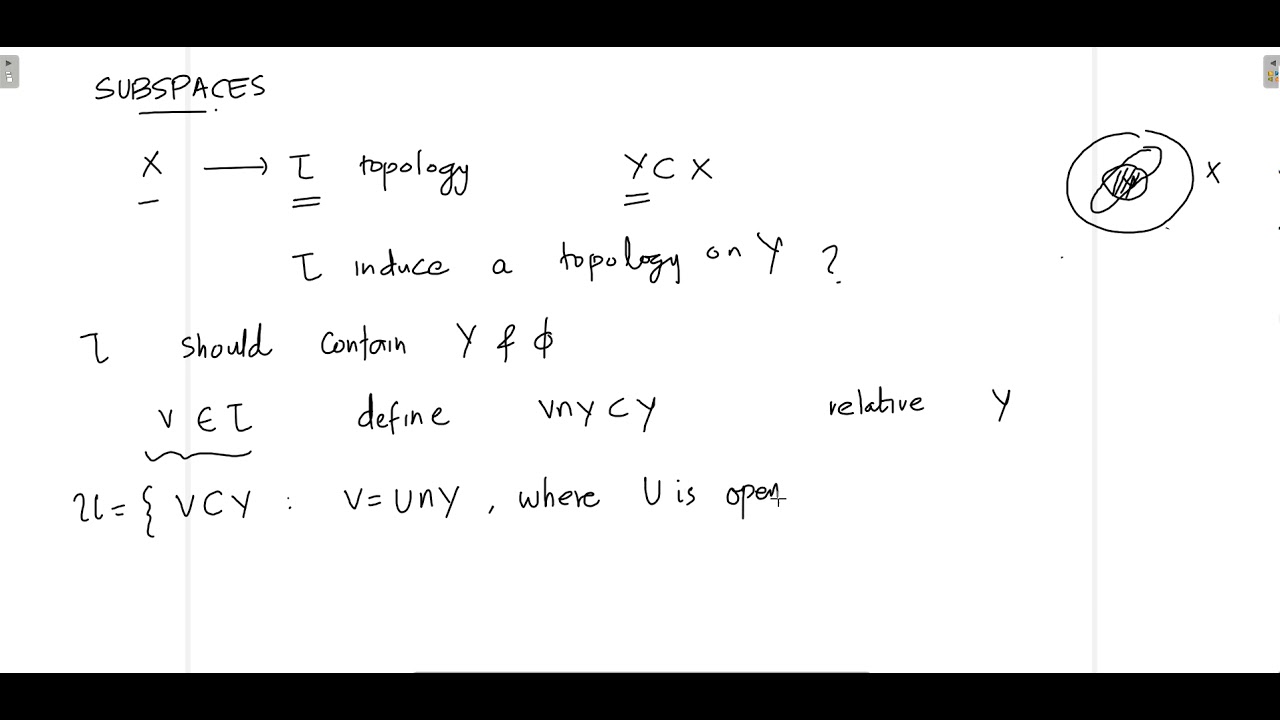 SUBSPACES
X → τ topology Y ⊂ X
X
τ induce a topology on Y ?
τ should contain Y & ϕ
V ∈ τ define V∩Y ⊂ Y relative Y
𝒰 = { V ⊂ Y : V = U∩Y , where U is open